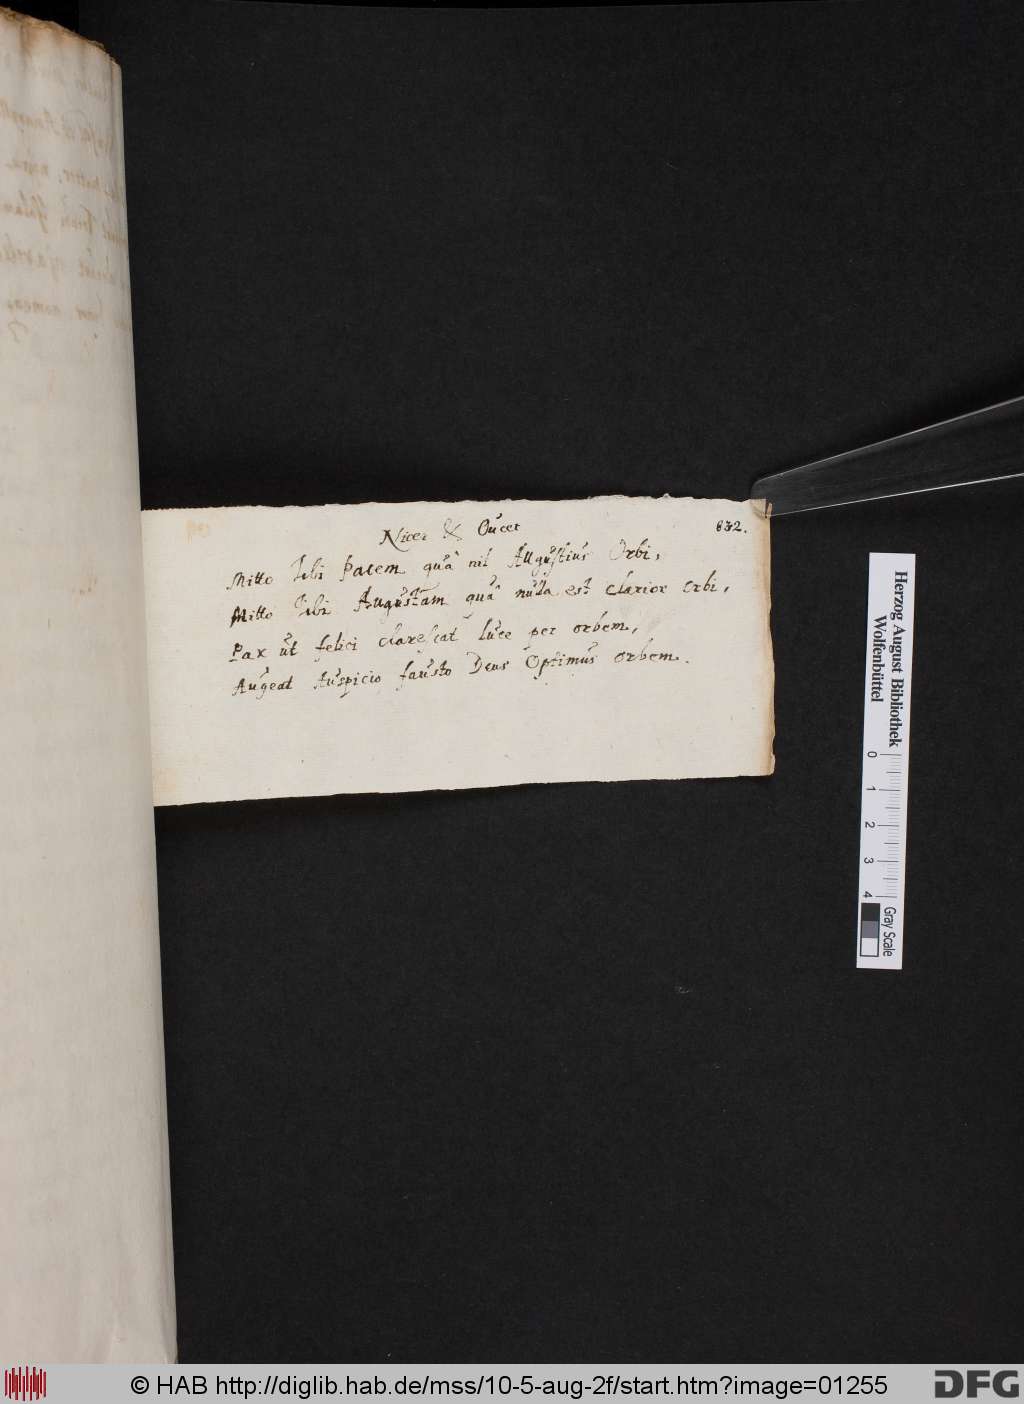 632.
Nicer & Oucer
Mitto Tibi Pacem quâ nil Augustius Orbi,
Mitto Tibi Augustam quâ nulla est clarior orbi,
Pax ut felici clarescat luce per orbem,
Augeat Auspicio fausto Deus Optimus orbem.
Herzog August Bibliothek
Wolfenbüttel
0 1 2 3 4
Gray Scale
© HAB http://diglib.hab.de/mss/10-5-aug-2f/start.htm?image=01255
DFG